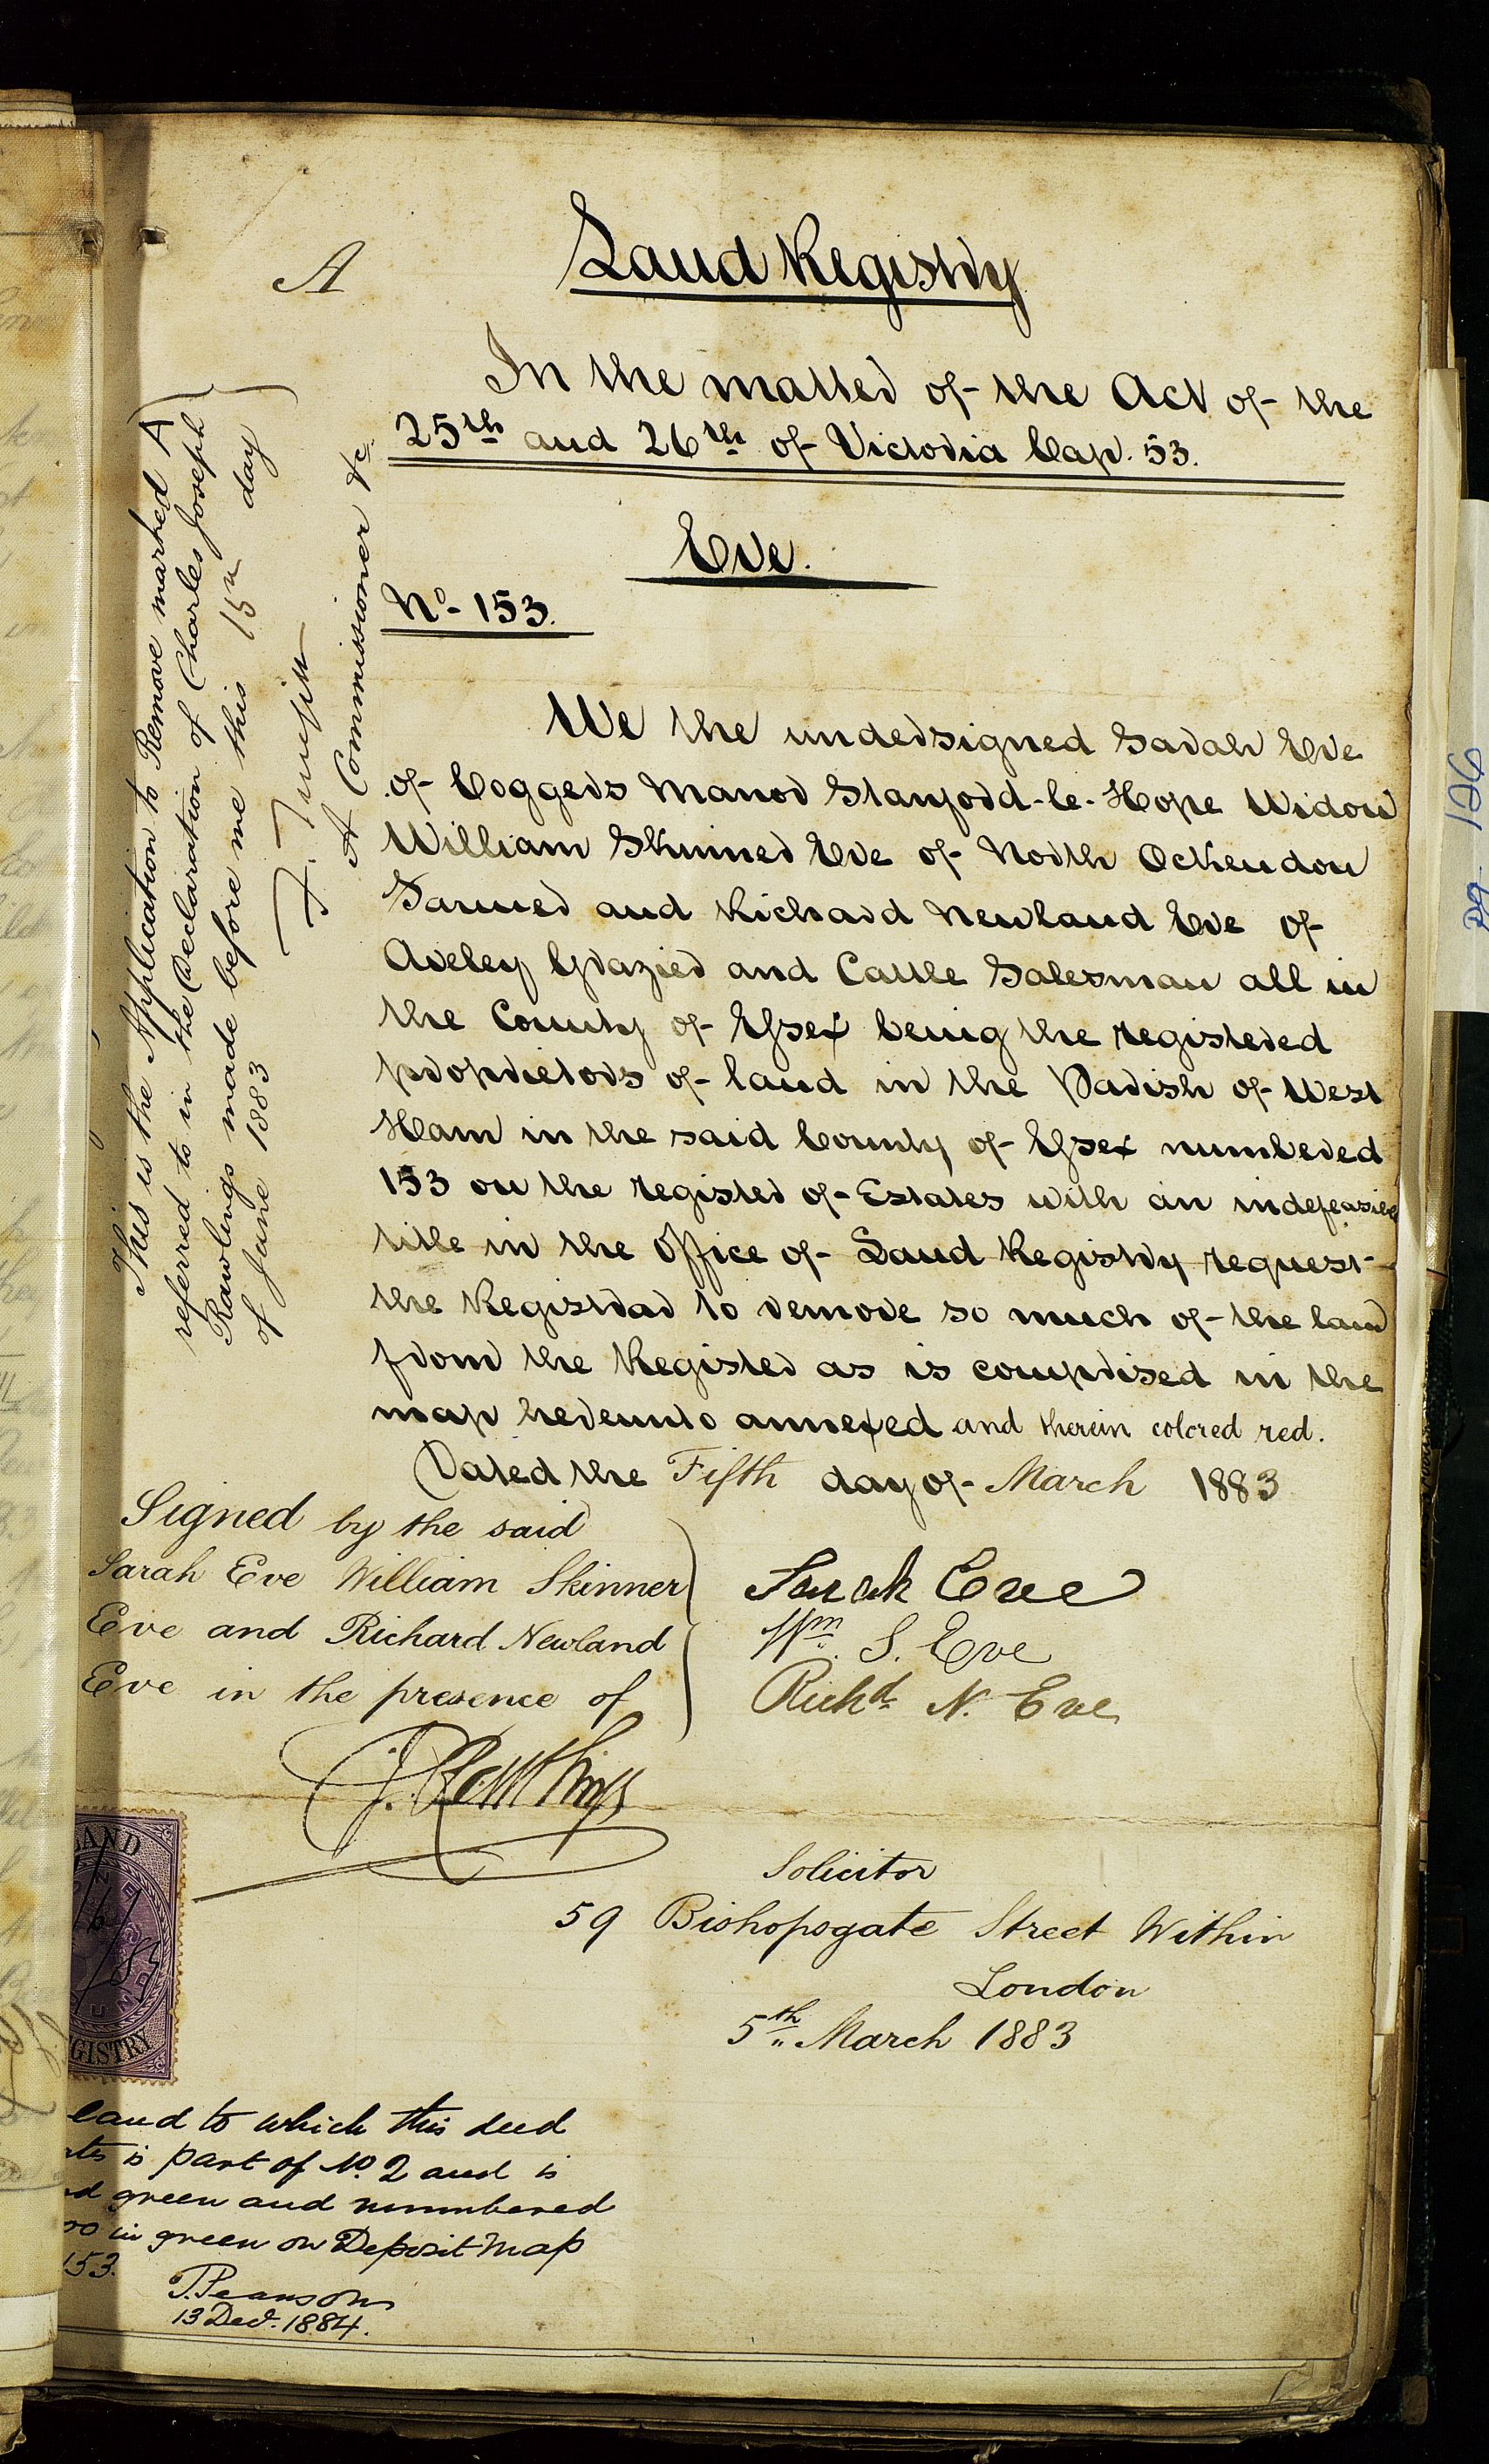 A
Land Registry
In the matter of the Act of the
25th and 26th of Victoria Cap. 53.
Eve.
No. 153.
We the undersigned Sarah Eve
of Coggers Manor Stanford-le-Hope Widow
William Skinner Eve of North Ockendon
Farmer and Richard Newland Eve of
Aveley Grazier and Cattle Salesman all in
the County of Essex being the registered
proprietors of land in the Parish of West
Ham in the said County of Essex numbered
153 on the register of Estates with an indefeasible
title in the Office of Land Registry request
the Registrar to remove so much of the land
from the Register as is comprised in the
map hereunto annexed and therein colored red.
Dated the Fifth day of March 1883
Signed by the said
Sarah Eve William Skinner
Eve and Richard Newland
Eve in the presence of
Sarah Eve
Wm. S. Eve
Richd. N. Eve
J. Rawlings
Solicitor
59 Bishopsgate Street Within
London
5th March 1883
This is the Application to Remove marked A
referred to in the Declaration of Charles Joseph
Rawlings made before me this 15th day
of June 1883
A Commissioner &c.
LAND
GISTRY
land to which this deed
is part of No. 2 and is
green and numbered
in green on Deposit Map
153.
T. Pearson
13 Decr. 1884.
pg. 126